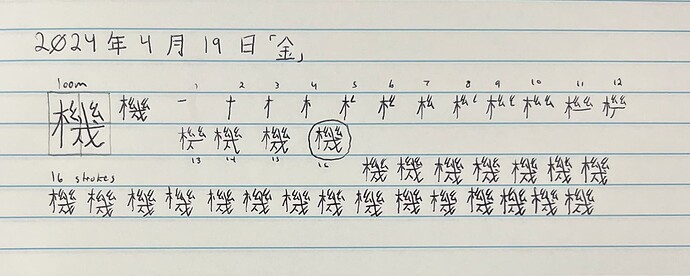 2024年4月19日「金」
loom 1 2 3 4 5 6 7 8 9 10 11 12
機 機 一 十
機
13 14 15 16
機 機 機 機 機 機 機
16 strokes
機 機 機 機 機 機 機 機 機 機 機 機 機 機 機